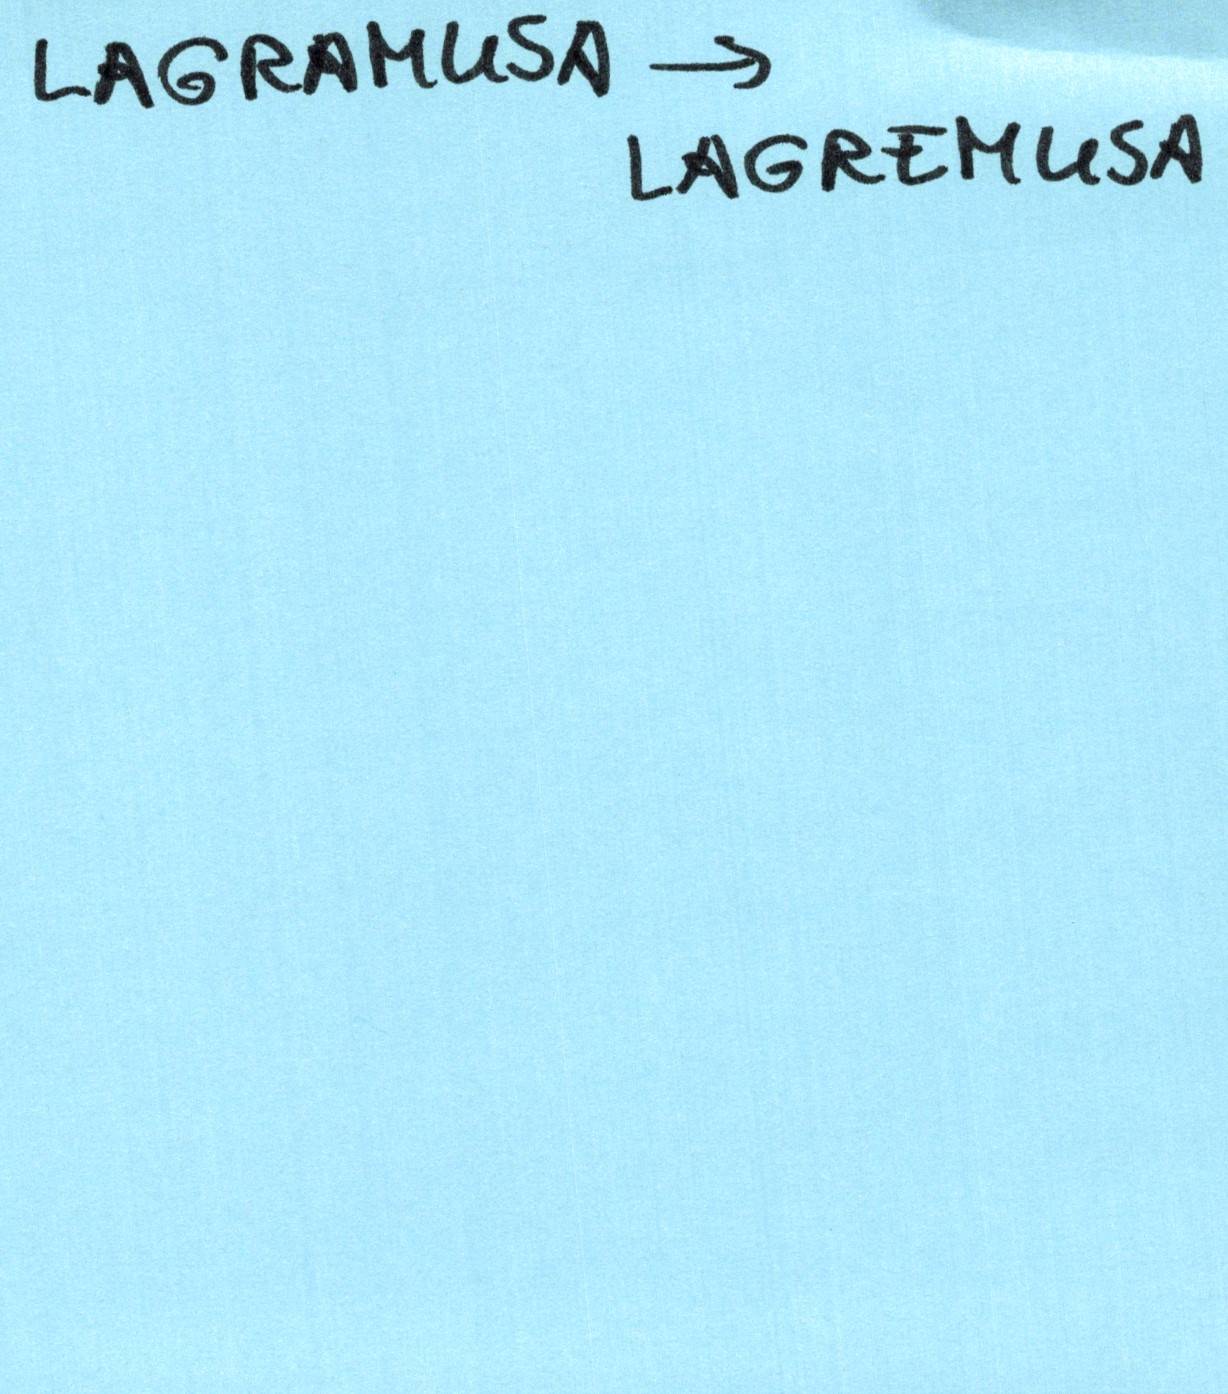 LAGRAMUSA →
LAGREMUSA